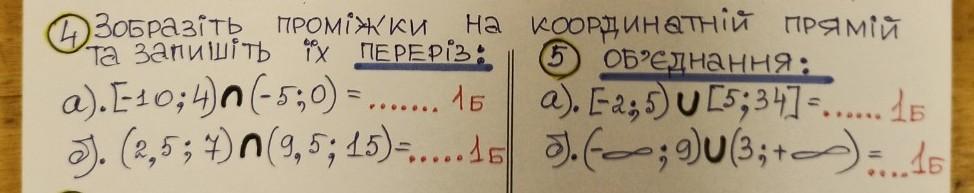 4 Зобразіть проміжки на координатній прямій
та запишіть їх ПЕРЕРІЗ:
а). [-10; 4) ∩ (-5; 0) = ....... 1Б
б). (2,5; 7) ∩ (9,5; 15) = ...... 1Б
5 ОБ'ЄДНАННЯ:
а). [-2; 5) ∪ [5; 34] = ...... 1Б
б). (-∞; 9) ∪ (3; +∞) = .... 1Б